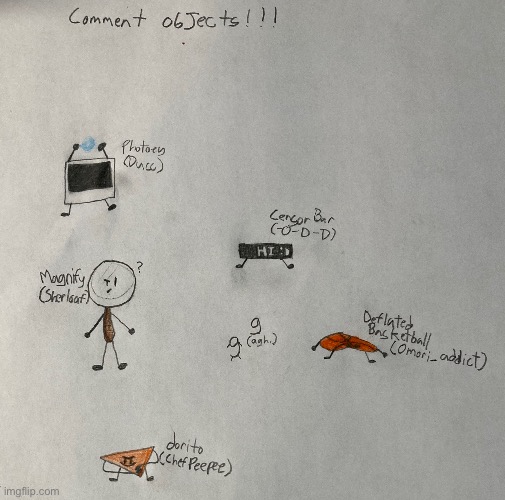 Comment objects!!!
Photoey
(Ducc)
Censor Bar
(-O-D-D)
HI :)
Magnify
(Sherloaf)
?
g
g (agh.)
Deflated
Basketball
(Omori_addict)
dorito
(Chef Peepee)
imgflip.com